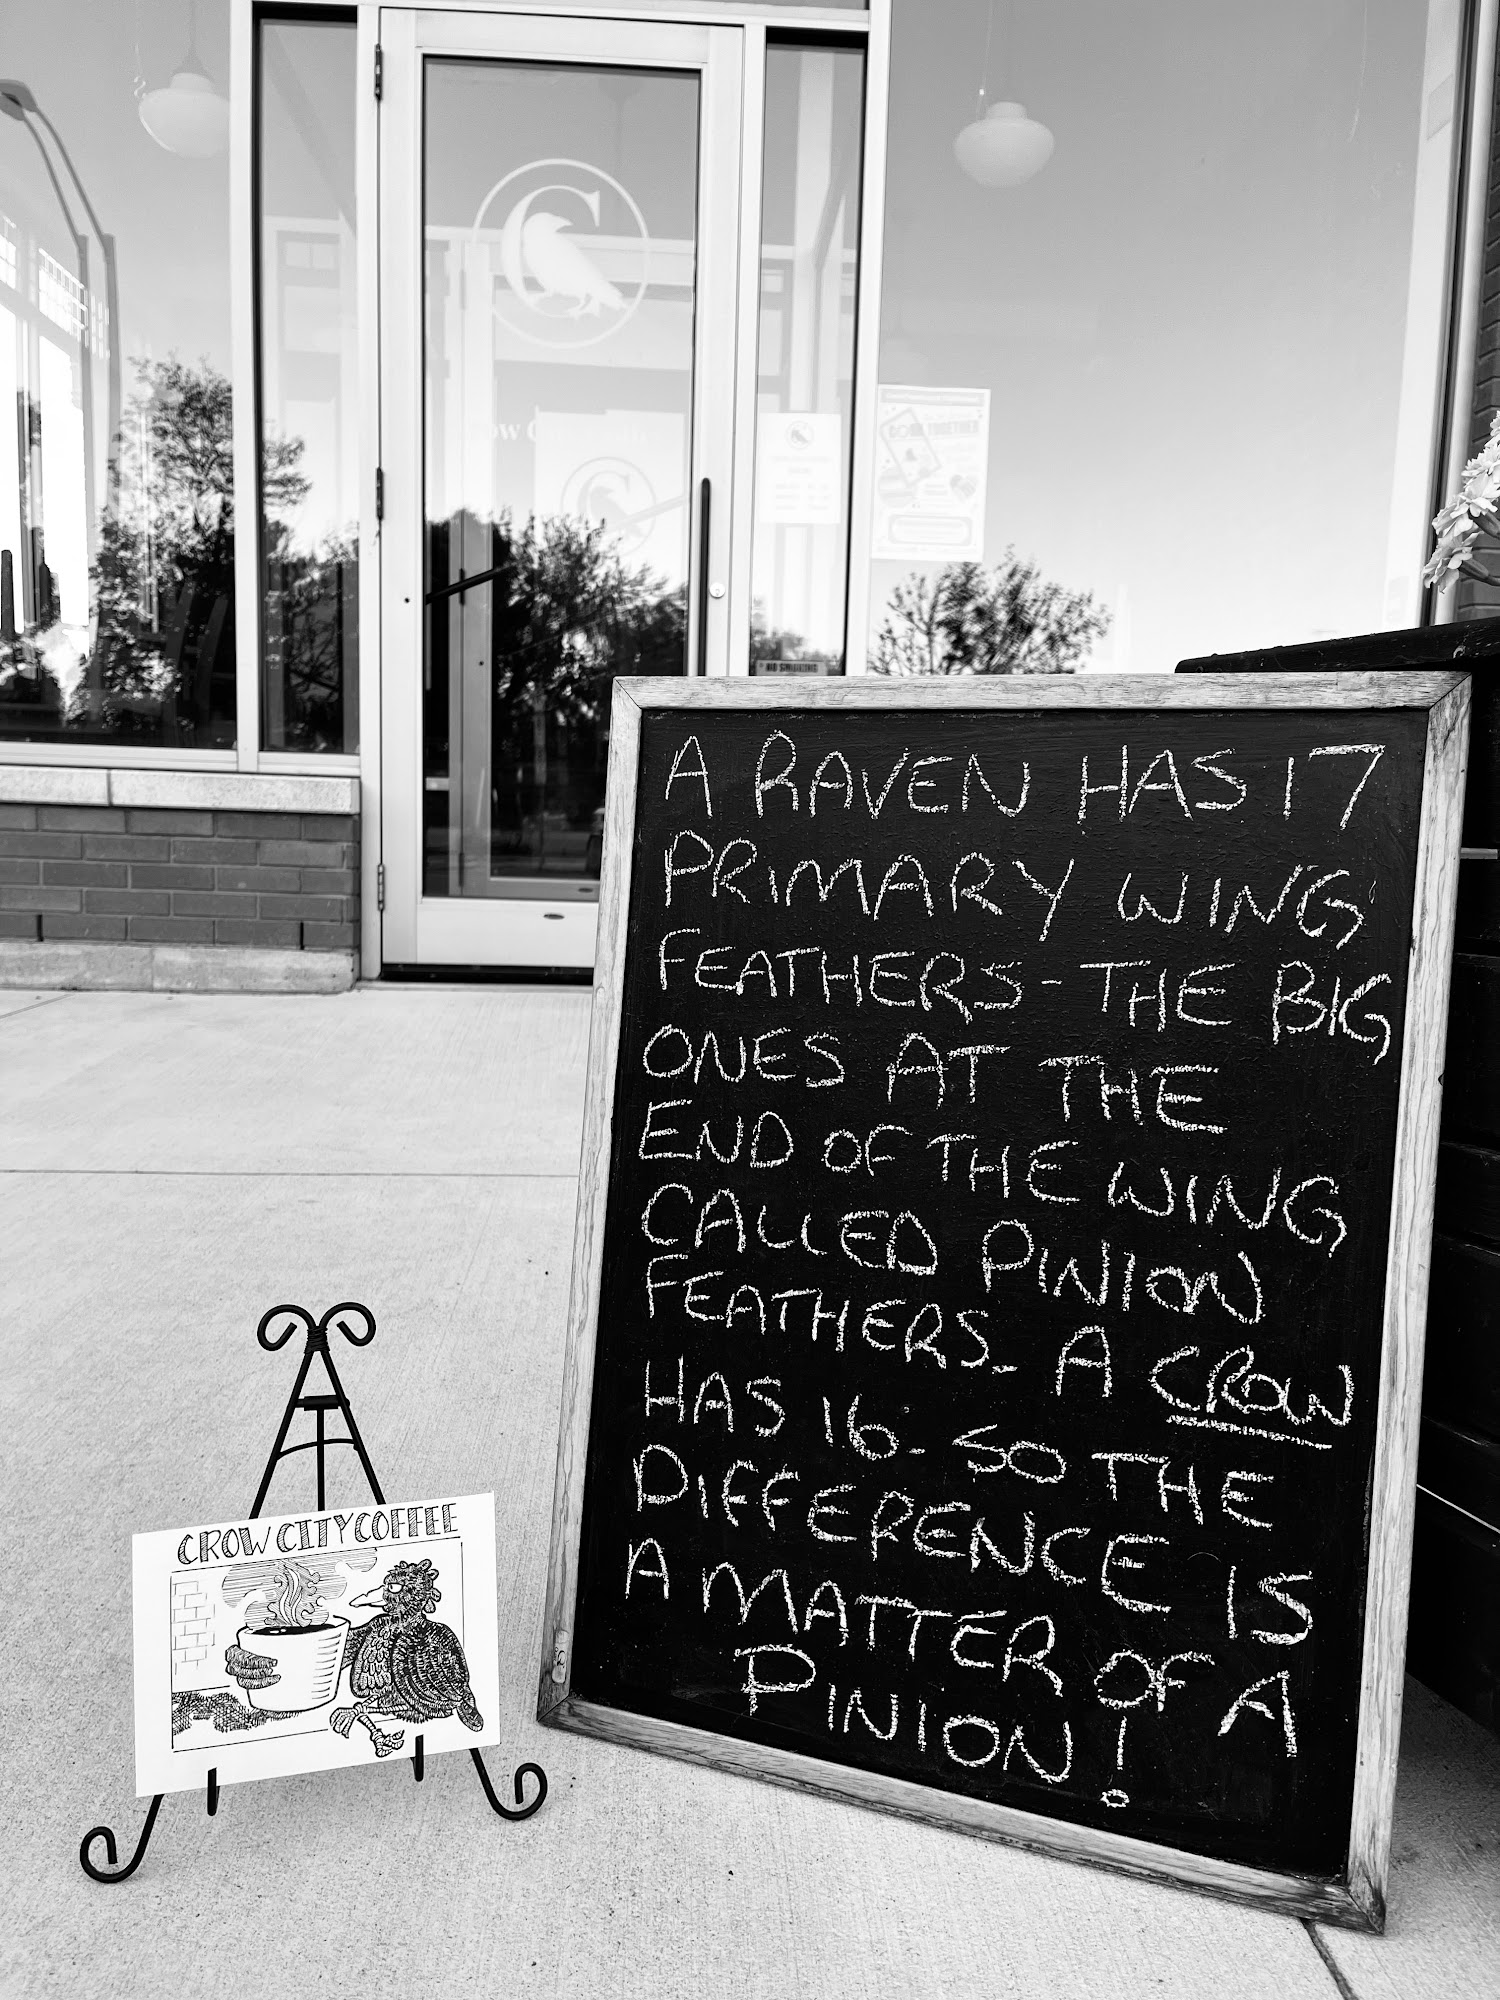 C
NO SMOKING
A RAVEN HAS 17
PRIMARY WING
FEATHERS - THE BIG
ONES AT THE
END OF THE WING
CALLED PINION
FEATHERS. A CROW
HAS 16. SO THE
DIFFERENCE IS
A MATTER OF A
PINION!
CROW CITY COFFEE